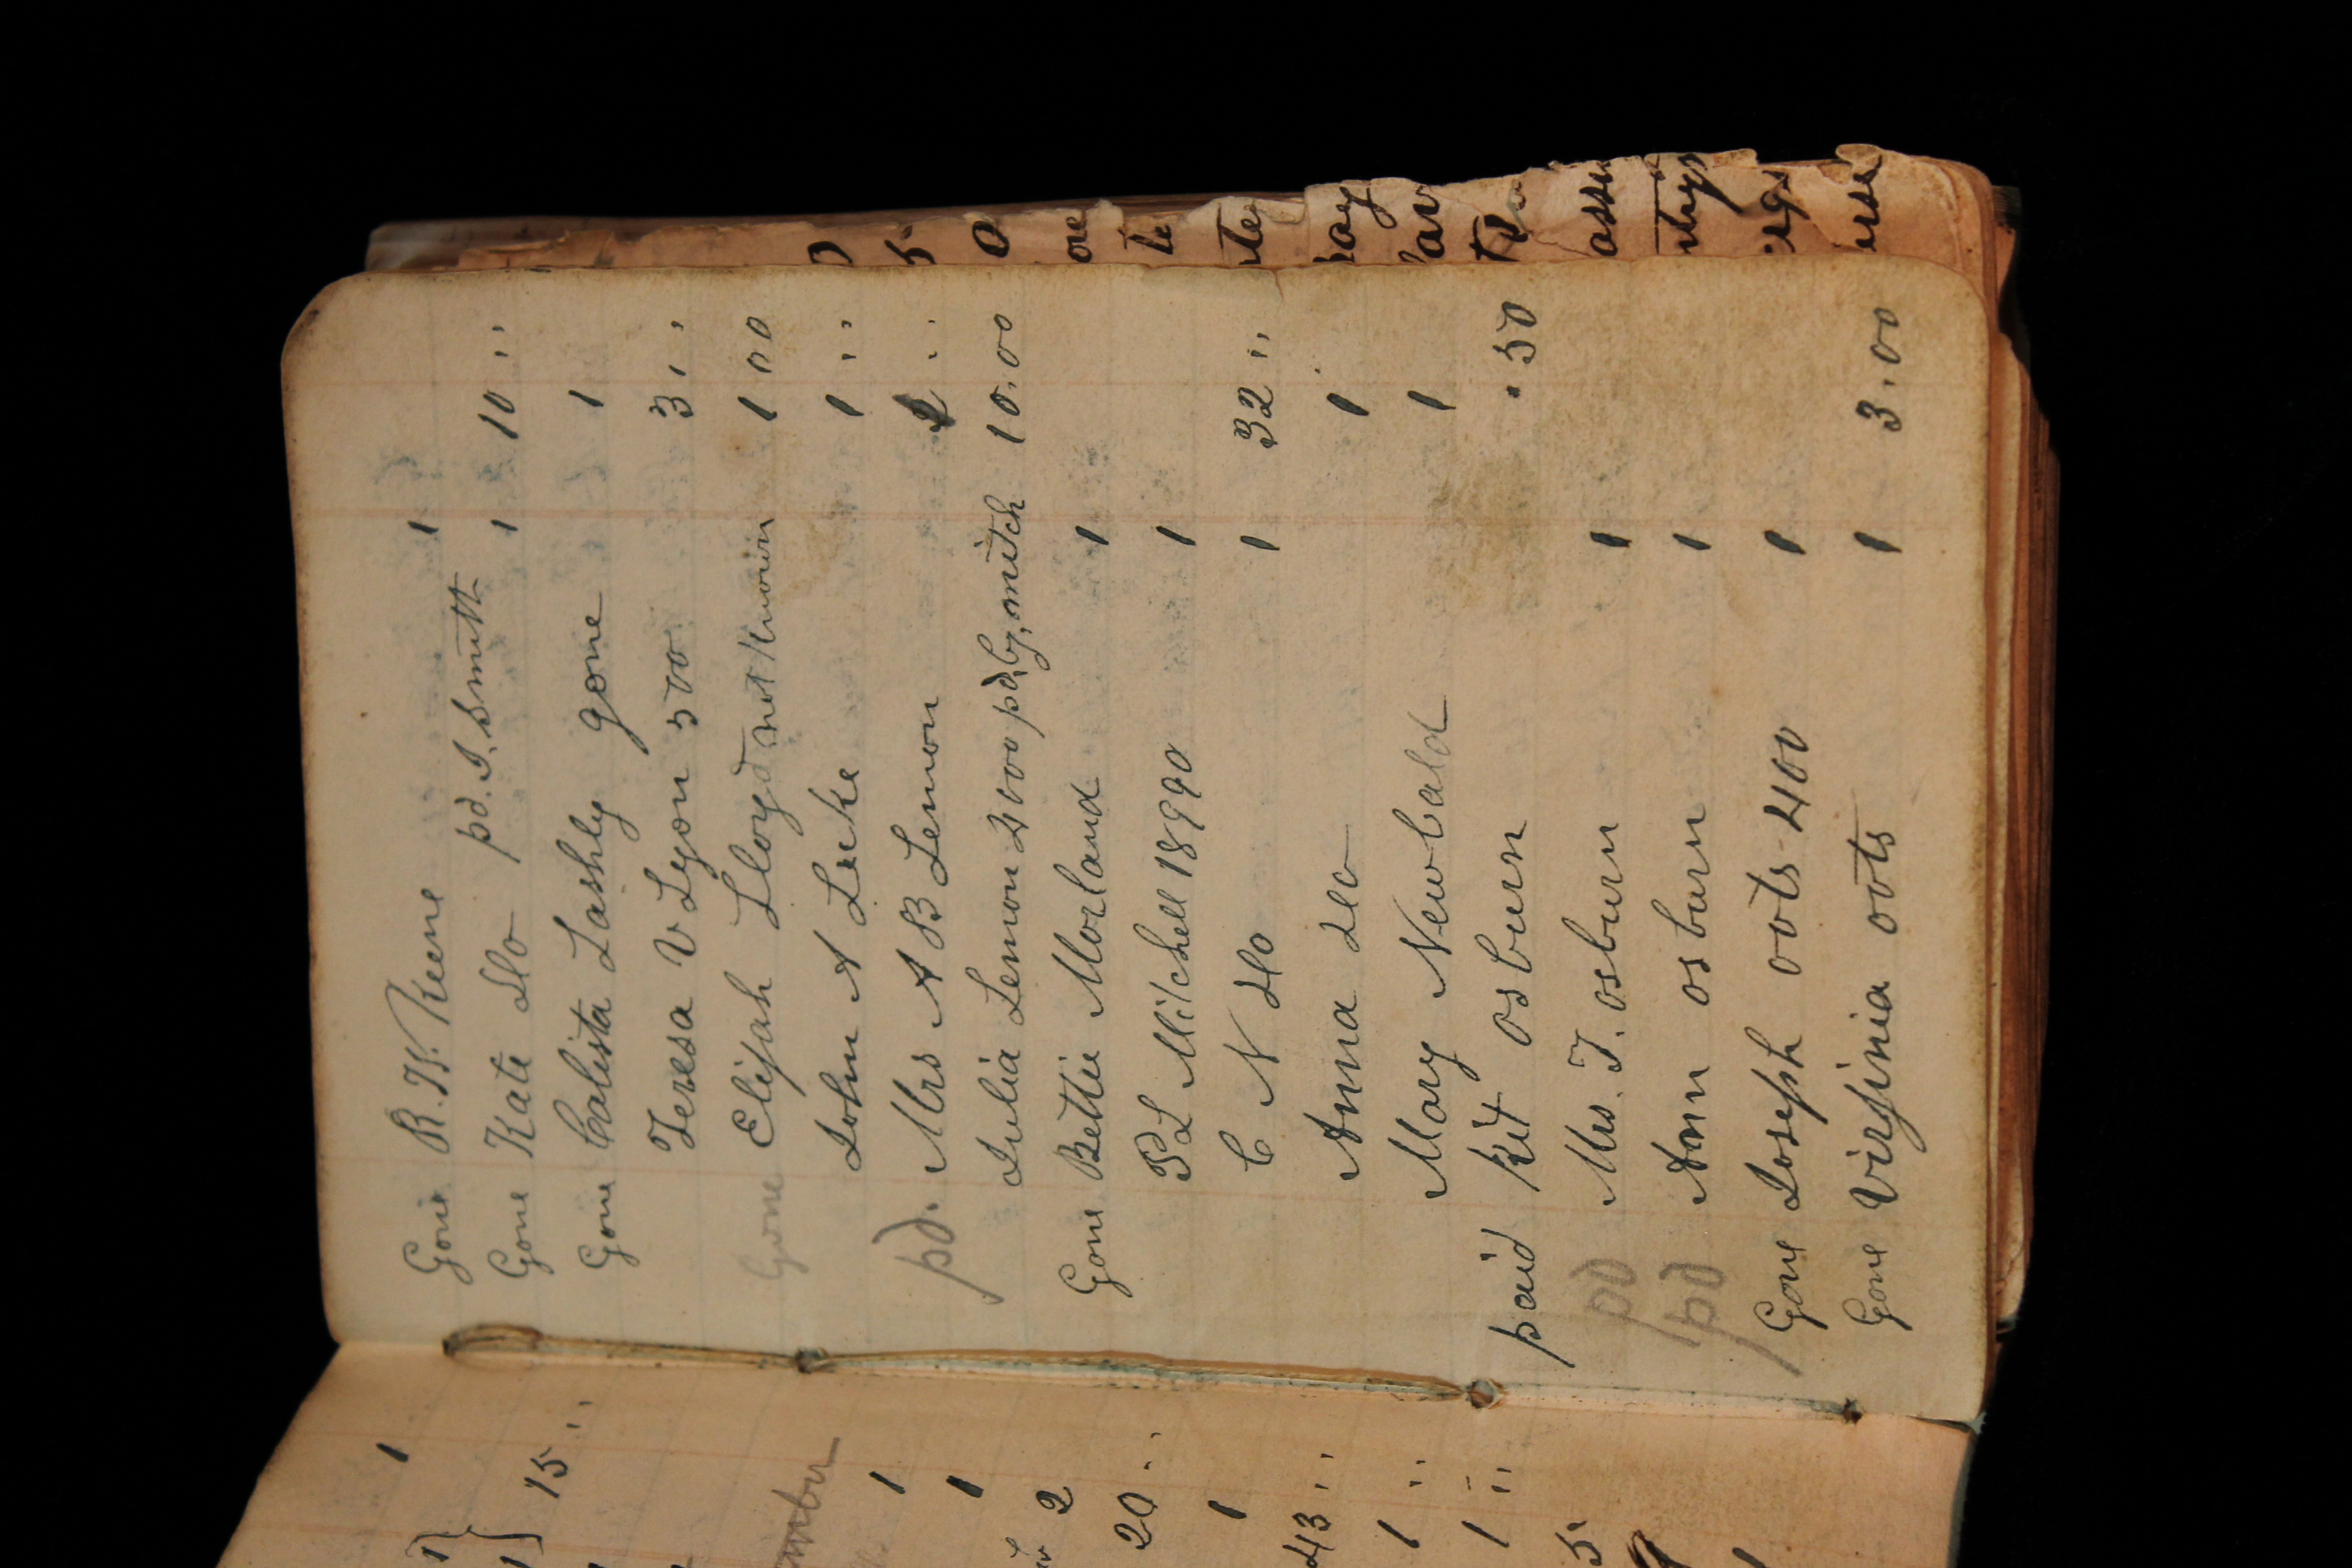 1
1
1
15 ..
1
1
2
20 ..
1
43 ..
1 ..
1 ..
5
Gone R. H. Keene 1
pd. J. Smith
Gone Kate Do 1 10 ..
Gone Calista Lashly gone 1
Teresa V Lyon 500 3 ..
Gone Elijah Lloyd not Known 1 00
John A Luke 1 ..
pd. Mrs A B Lemon ..
Julia Lemon 4000 pd, by, mitch 10.00
Gone Bettie Morland 1
P L Mitchell 18990 1
C N Do 1 32 ..
Anna Do 1
Mary Newbald 1
paid Kit Osburn .50
pd Mrs. T. Osburn 1
pd Ann Osburn 1
Gone Joseph Oots 400 1
Gone Virjinia Oots 1 3.00